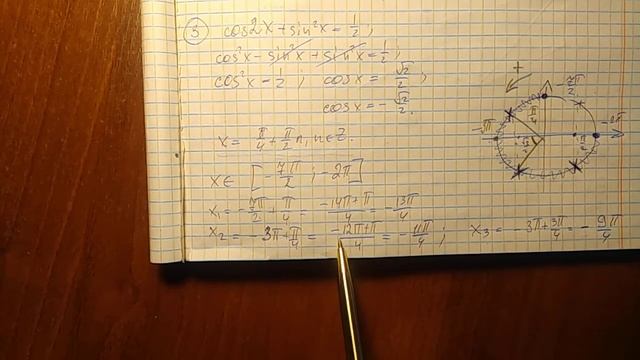 ③ cos2x + sin²x = 1/2 ;
cos²x - sin²x + sin²x = 1/2 ;
cos²x - 1/2 ; cosx = √2/2 ;
cosx = - √2/2.
x = π/4 + π/2 n, n ∈ Z.
x ∈ [-7π/2 ; -2π]
x₁ = -7π/2 + π/4 = -14π+π/4 = -13π/4
x₂ = -3π + π/4 = -12π+π/4 = -11π/4 ; x₃ = -3π + 3π/4 = -9π/4
+
-7π/2
π/4
-2π